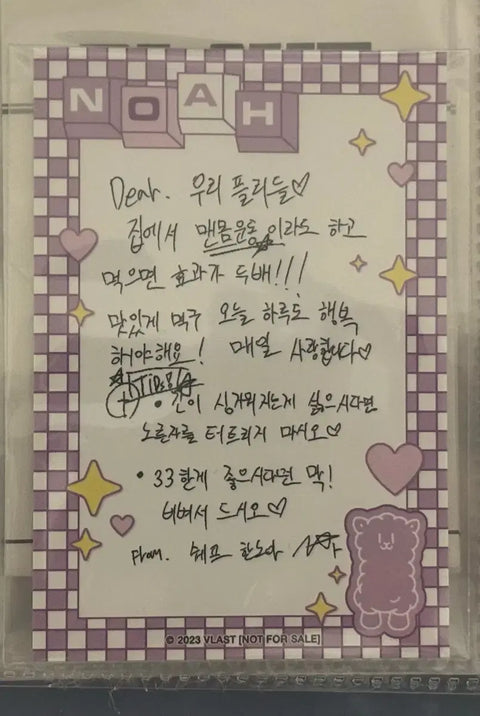 NOAH
Dear. 우리 플리들♡
집에서 맨몸운동이라도 하고
먹으면 효과가 두배!!!
맛있게 먹구 오늘 하루도 행복
해야해요! 매일 사랑합니다♡
TIP
+ • 간이 싱거워지는게 싫으시다면
노른자를 터트리지 마시오♡
• 33한게 좋으시다면 막!
비벼서 드시오♡
From. 쉐프 한노아
© 2023 VLAST [NOT FOR SALE]